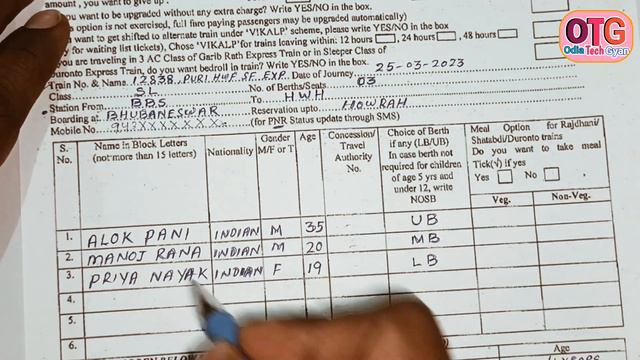 amount, you want to give up
you want to be upgraded without any extra charge? Write YES/NO in the box.
s option is not exercised, full fare paying passengers may be upgraded automatically)
want to get shifted to alternate train under 'VIKALP' scheme, please write YES/NO in the box.
y for waiting list tickets), Chose 'VIKALP' for trains leaving within 12 hours , 24 hours , 48 hours
you are traveling in 3 AC Class of Garib Rath Express Train or in Sleeper Class of
Duronto Express Train, do you want bedroll in train? Write YES/NO in the box.
Train No. & Name 12838, PURI.HWF.SF.EXP. Date of Journey 25-03-2023
Class SL No. of Berths/Seats 03
Station From BBS To HWH
Boarding at BHUBANESWAR Reservation upto HOWRAH
Mobile No. 94?XXXXXXX. (for PNR Status update through SMS)
S. No. Name in Block Letters (not more than 15 letters) Nationality Gender M/F or T Age Concession/ Travel Authority No. Choice of Berth if any (LB/UB) In case berth not required for children of age 5 yrs and under 12, write NOSB Meal Option for Rajdhani/ Shatabdi/Duronto trains Do you want to take meal Tick(√) if yes Yes No
Veg. Non-Veg.
1. ALOK PANI INDIAN M 35 UB
2. MANOJ RANA INDIAN M 20 MB
3. PRIYA NAYAK INDIAN F 19 LB
4.
5.
6.
Age
OTG
Odia Tech Gyan